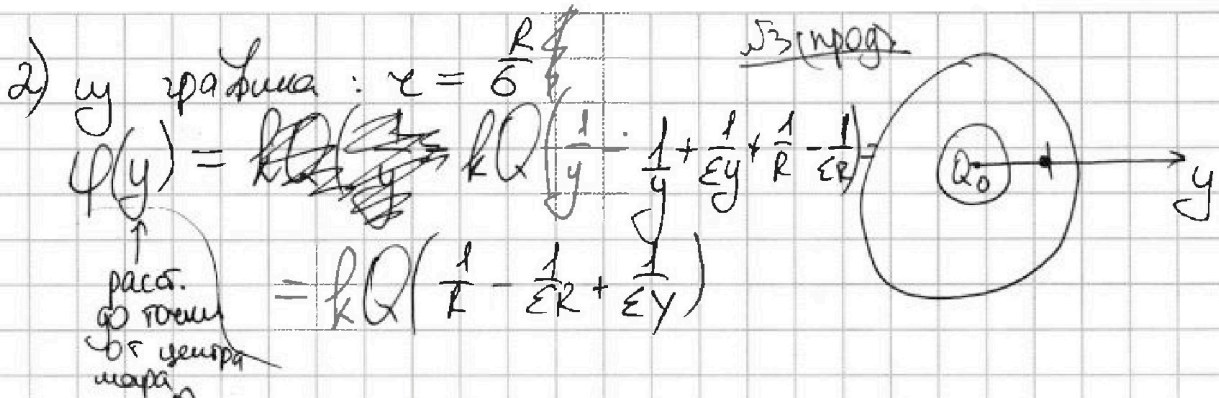 №3 (прод).
2) из графика : r = R/6
φ(y) = kQ(1/y - 1/y + 1/εy + 1/R - 1/εR) =
= kQ(1/R - 1/εR + 1/εy)
расст.
до точки
от центра
шара
Q
y